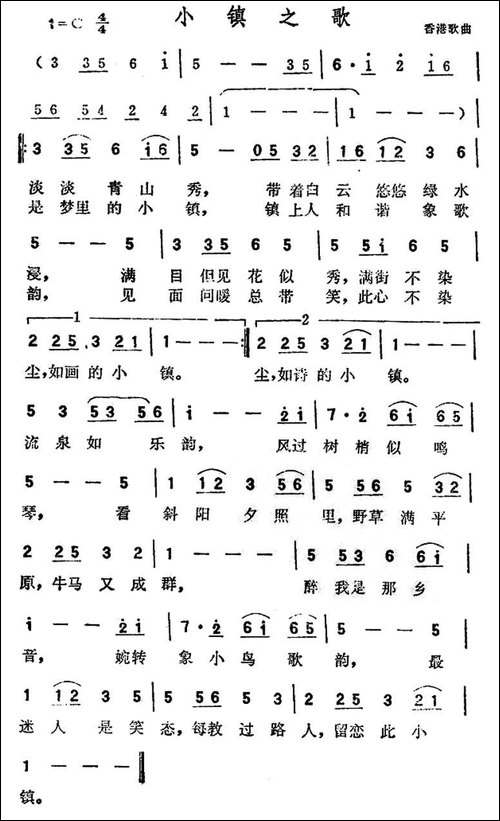 小镇之歌
1=C 4/4 香港歌曲
(3 35 6 i | 5 — — 35 | 6· i 2 i6 |
56 54 2 4 2 | 1 — — — | 1 — — —)
3 35 6 i6 | 5 — 05 32 | 16 12 3 6 |
淡淡青山秀，带着白云悠悠绿水
是梦里的小镇，镇上人和谐象歌
5 — — 5 | 3 35 6 5 | 5 5i 6 5 |
浸，满目但见花似秀，满街不染
韵，见面问暖总带笑，此心不染
1 2
2 25 3 21 | 1 — — — :| 2 25 3 21 | 1 — — — |
尘，如画的小镇。尘，如诗的小镇。
5 3 53 56 | i — — 2i | 7· 2 6i 65 |
流泉如乐韵，风过树梢似鸣
5 — — 5 | 1 12 3 56 | 5 56 5 3 |
琴，看斜阳夕照里，野草满平
2 25 3 2 | 1 — — — | 5 53 6 6i |
原，牛马又成群，醉我是那乡
i — — 2i | 7· 2 6i 65 | 5 — — 5 |
音，婉转象小鸟歌韵，最
1 12 3 5 | 5 56 5 3 | 2 25 3 21 |
迷人是笑态，每教过路人，留恋此小
1 — — ‖
镇。